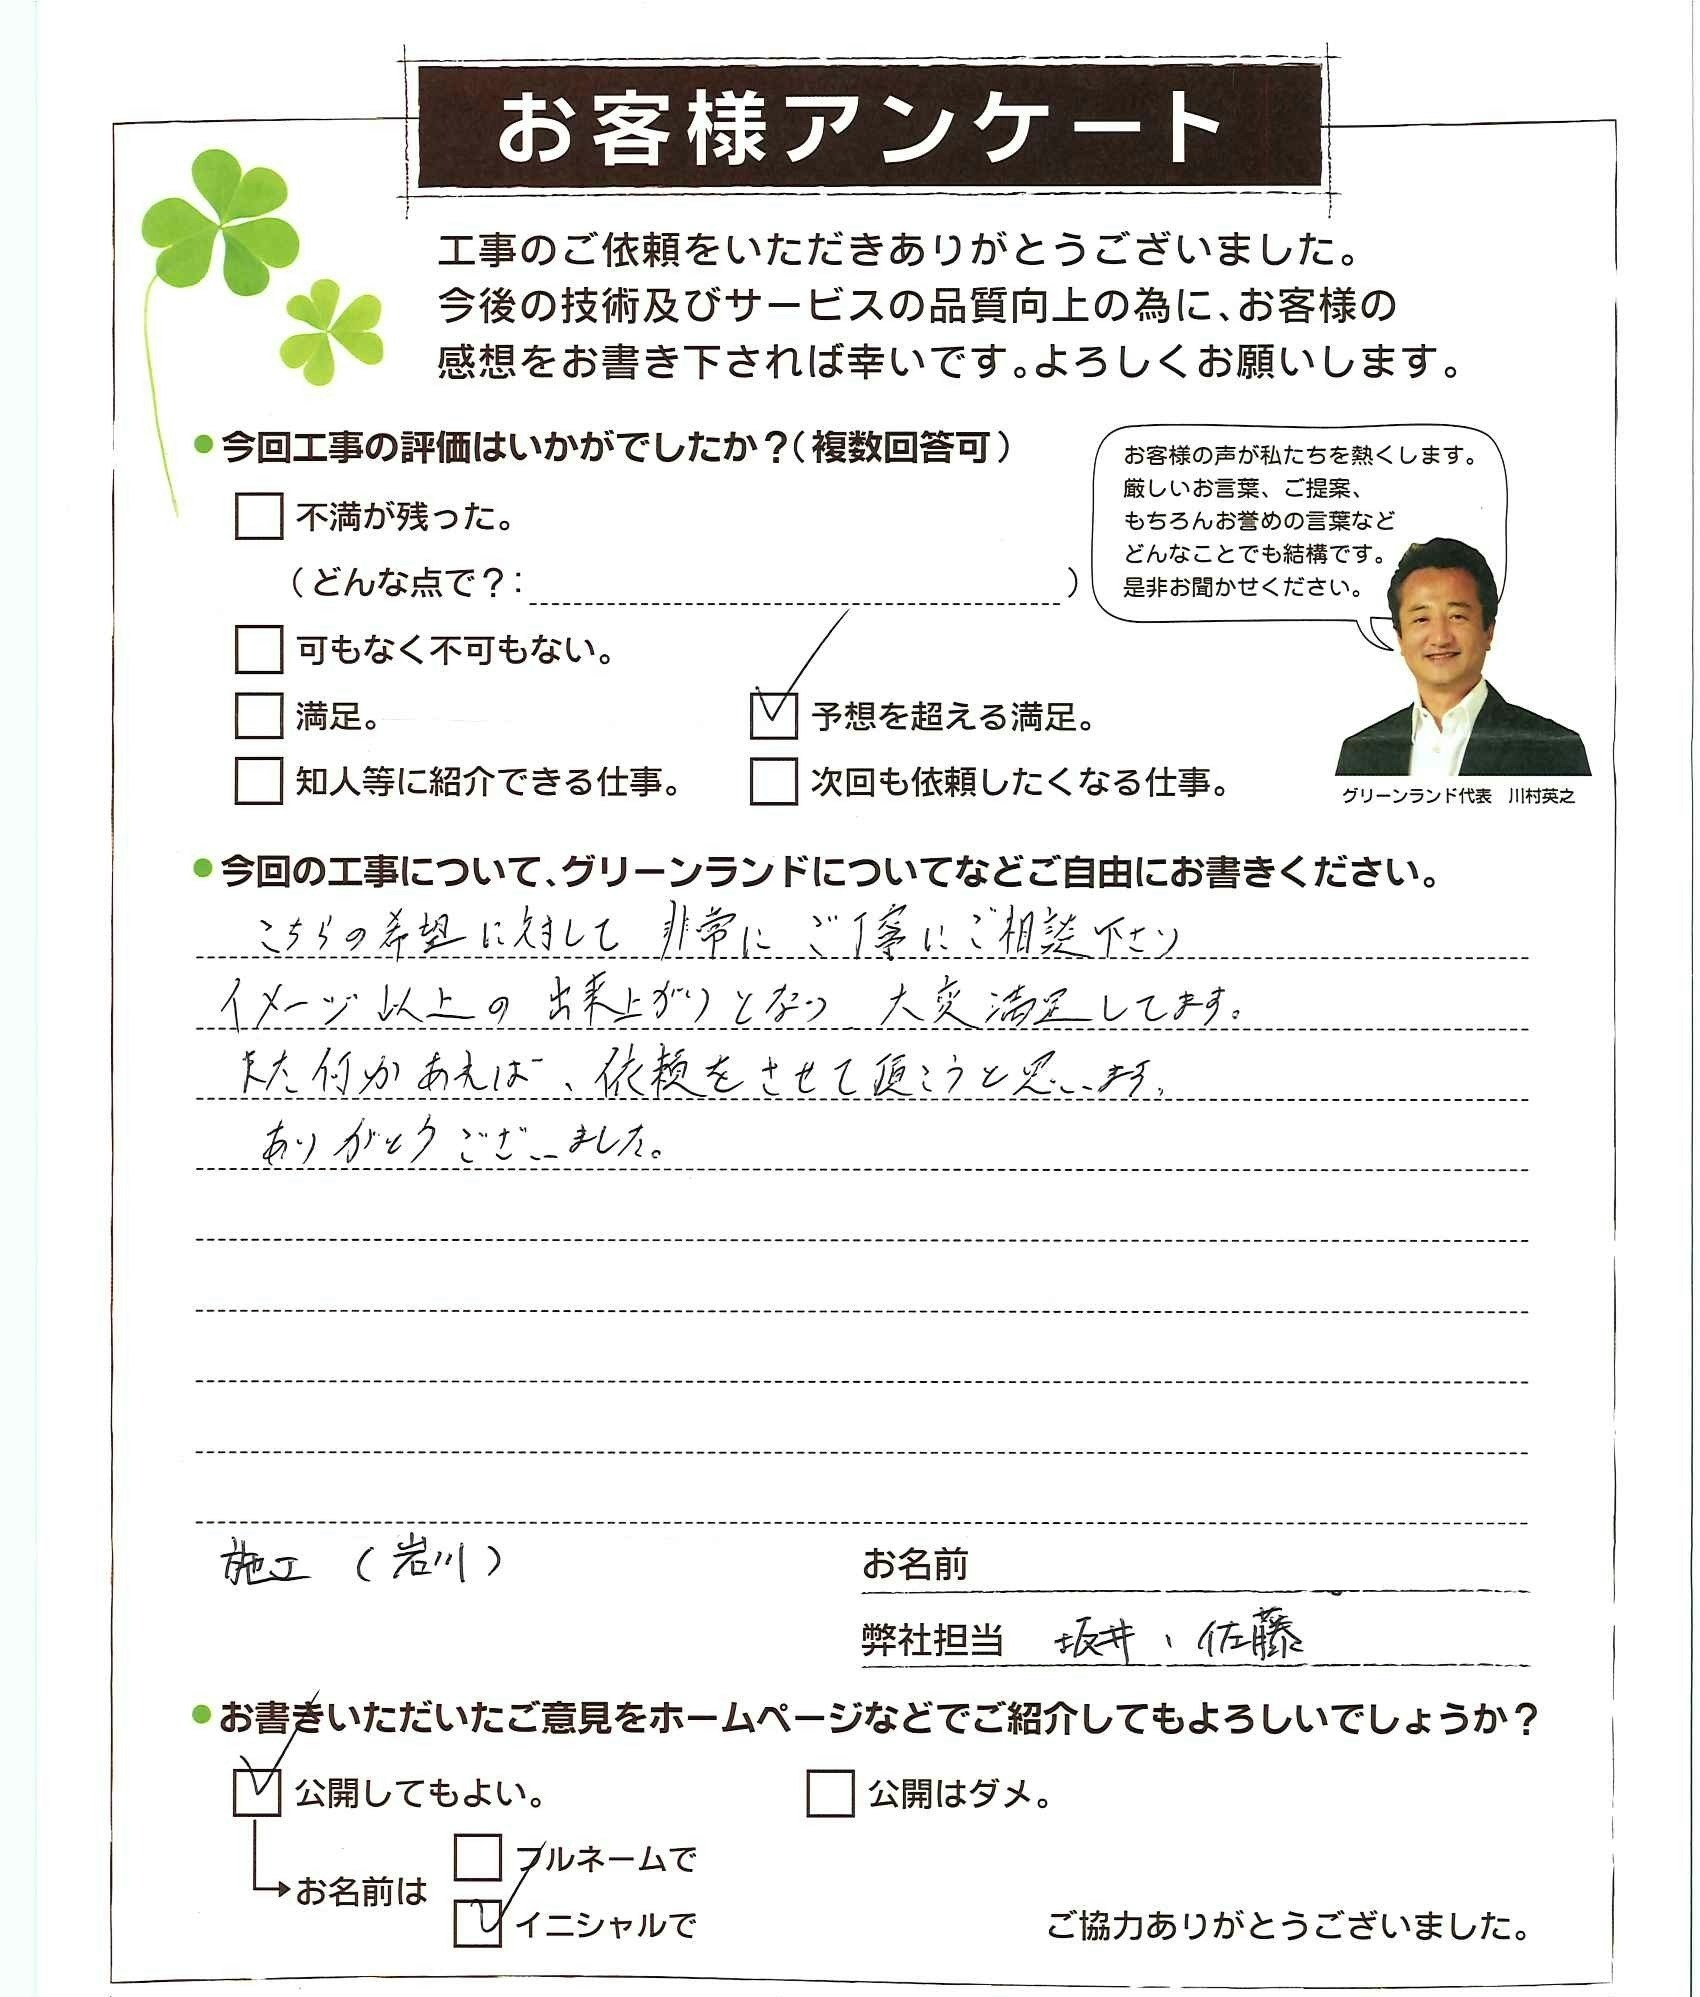 お客様アンケート
工事のご依頼をいただきありがとうございました。
今後の技術及びサービスの品質向上の為に、お客様の
感想をお書き下されば幸いです。よろしくお願いします。
●今回工事の評価はいかがでしたか？（複数回答可）
お客様の声が私たちを熱くします。
厳しいお言葉、ご提案、
もちろんお誉めの言葉など
どんなことでも結構です。
是非お聞かせください。
不満が残った。
（どんな点で？：　）
可もなく不可もない。
満足。
予想を超える満足。
知人等に紹介できる仕事。
次回も依頼したくなる仕事。
グリーンランド代表　川村英之
●今回の工事について、グリーンランドについてなどご自由にお書きください。
こちらの希望に対して 非常に ご丁寧にご相談下さり
イメージ以上の 出来上がりとなり 大変満足してます。
また何かあれば、依頼をさせて頂こうと思います。
ありがとうございました。
施工（岩川）
お名前
弊社担当 坂井、佐藤
●お書きいただいたご意見をホームページなどでご紹介してもよろしいでしょうか？
公開してもよい。
公開はダメ。
お名前は
フルネームで
イニシャルで
ご協力ありがとうございました。